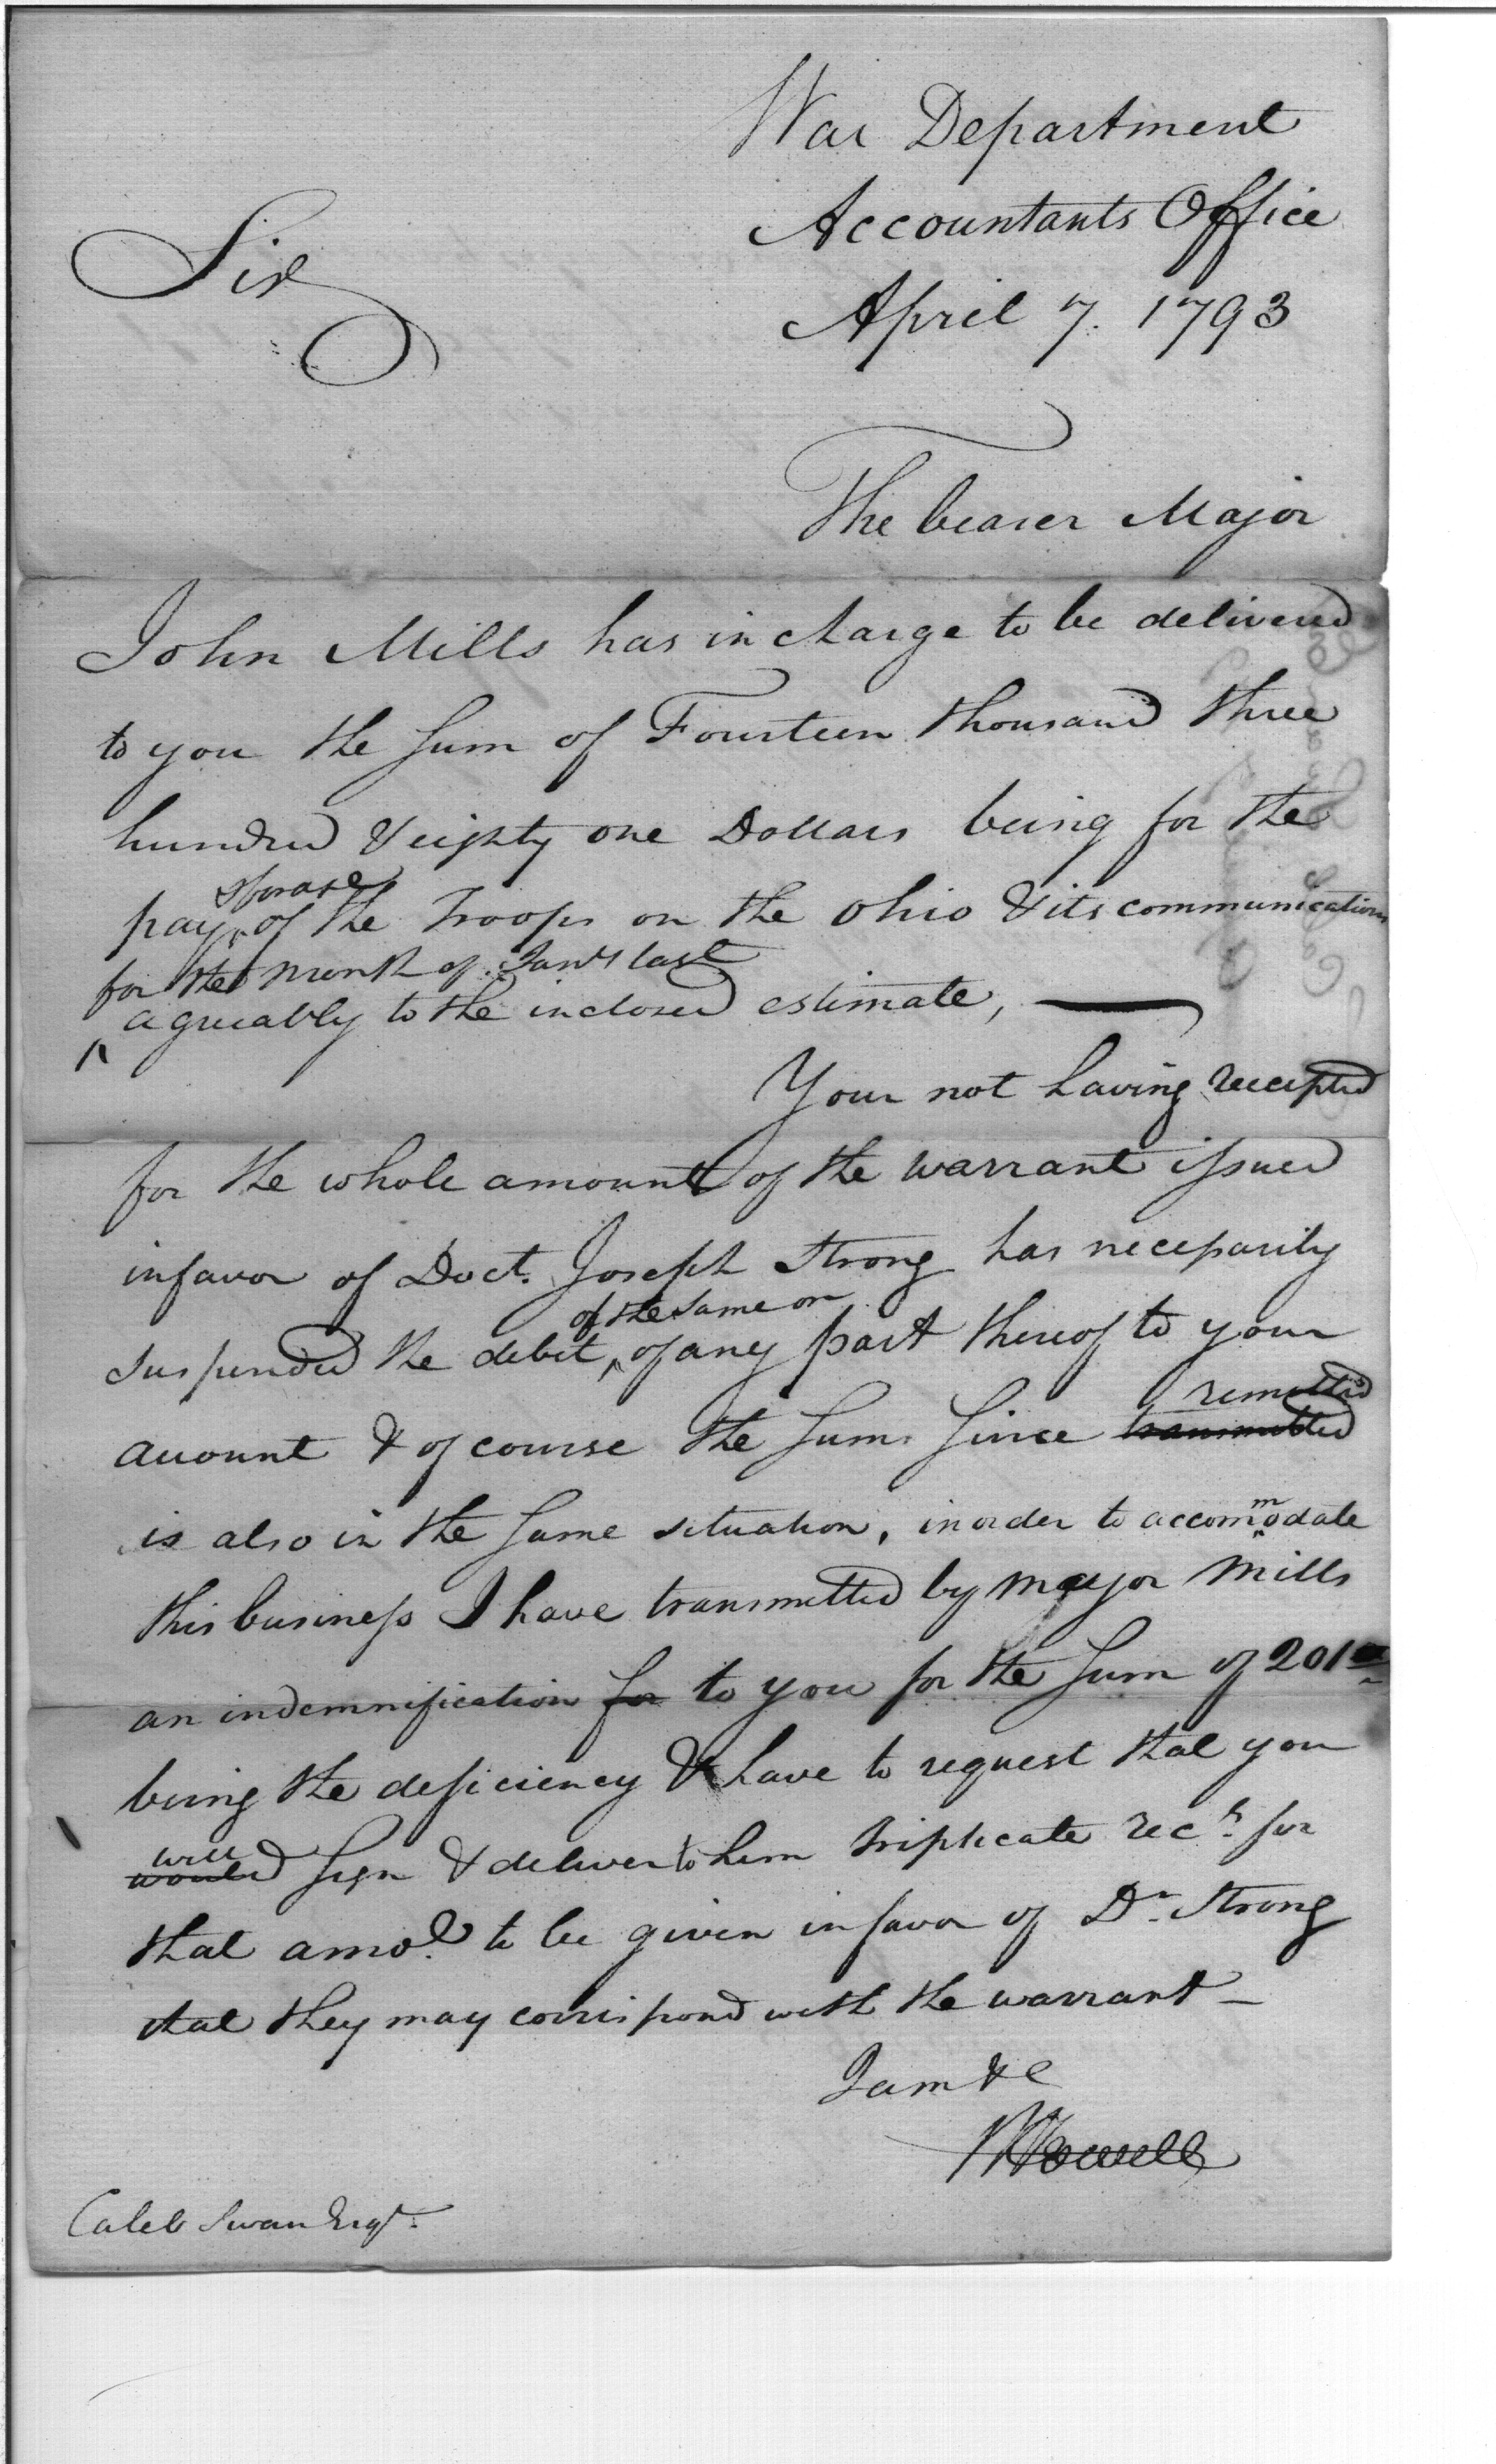 War Department
Accountants Office
April 7. 1793
Sir
The bearer Major
John Mills has in charge to be delivered
to you the sum of Fourteen thousand three
hundred & eighty one Dollars being for the
& forage
pay of the Troops on the Ohio & its communications
for the month of Jany last
agreeably to the inclosed estimate,
Your not having receipted
for the whole amount of the warrant issued
in favor of Doct. Joseph Strong has necessarily
of the same or
suspended the debit of any part thereof to your
remitted
account & of course the sums since transmitted
is also in the same situation, in order to accommodate
this business I have transmitted by Major Mills
an indemnification for to you for the sum of 201
being the deficiency & have to request that you
will
would sign & deliver to him triplicate rects. for
that amot. to be given in favor of Dr. Strong
that they may correspond with the warrant —
I am &c
J Howell
Caleb Swan Esqr.